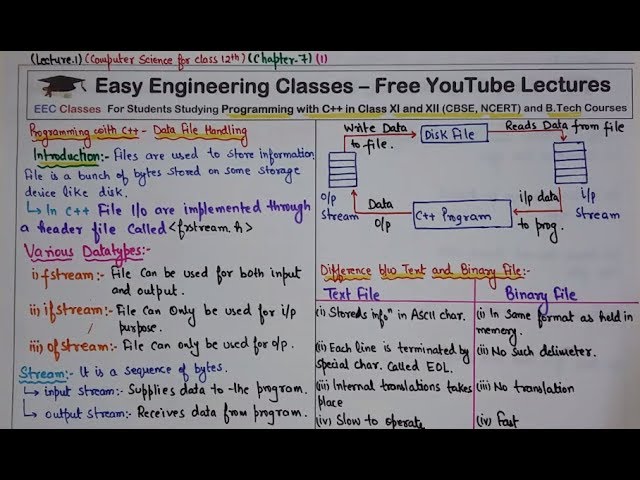 (Lecture.1) (Computer Science for class 12th) (Chapter-7) (1)
Easy Engineering Classes – Free YouTube Lectures
EEC Classes For Students Studying Programming with C++ in Class XI and XII (CBSE, NCERT) and B.Tech Courses
Programming with C++ - Data File Handling
Introduction:- Files are used to store information
File is a bunch of bytes stored on some storage
device like disk.
↳ In C++ File I/o are implemented through
a header file called <frstream.h>
Various Datatypes:-
i) fstream:- File can be used for both input
and output.
ii) ifstream:- File can only be used for i/p
purpose.
iii) ofstream:- File can only be used for o/p.
Stream:- It is a sequence of bytes.
↳ input stream:- Supplies data to the program.
↳ output stream:- Receives data from program.
Write Data
to file.
Disk File
Reads Data from file
o/p
stream
Data
o/p
C++ Program
i/p data
to prog.
i/p
stream
Difference b/w Text and Binary File:-
Text File
Binary File
(i) Stored infoⁿ in ASCII char.
(i) In Same format as held in
memory.
(ii) Each line is terminated by
special char. called EOL.
(ii) No such delimeter.
(iii) Internal translations takes
place
(iii) No translation
(iv) Slow to operate
(iv) Fast